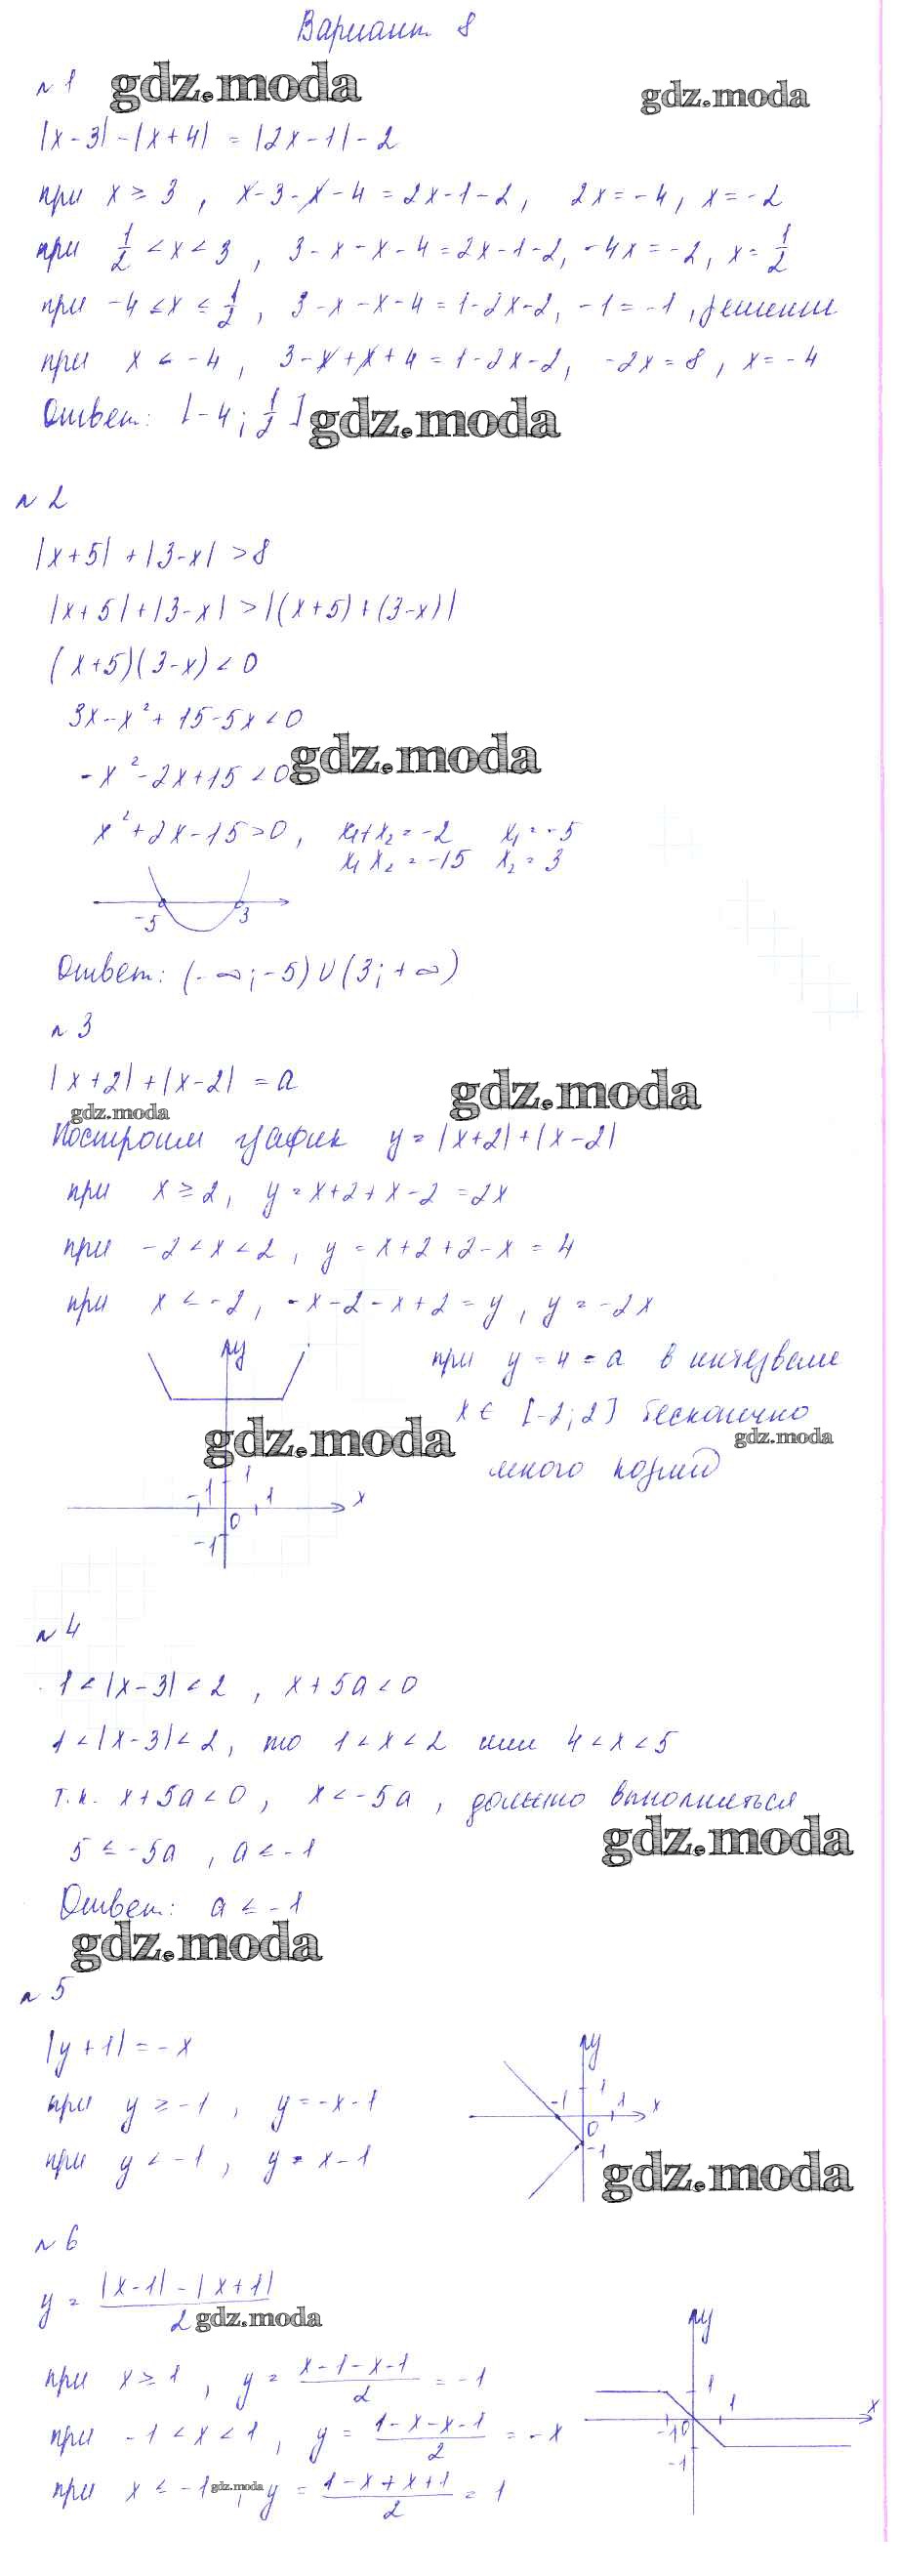 Вариант 8
№ 1 gdz.moda gdz.moda
|x-3| - |x+4| = |2x-1| - 2
при x ≥ 3, x-3-x-4 = 2x-1-2, 2x = -4, x = -2
при 1/2 < x < 3, 3-x-x-4 = 2x-1-2, -4x = -2, x = 1/2
при -4 ≤ x ≤ 1/2, 3-x-x-4 = 1-2x-2, -1 = -1, решение
при x < -4, 3-x+x+4 = 1-2x-2, -2x = 8, x = -4
Ответ: [-4; 1/2] gdz.moda
№ 2
|x+5| + |3-x| > 8
|x+5| + |3-x| > |(x+5) + (3-x)|
(x+5)(3-x) < 0
3x - x² + 15 - 5x < 0
-x² - 2x + 15 < 0 gdz.moda
x² + 2x - 15 > 0, x₁+x₂ = -2 x₁ = -5
x₁x₂ = -15 x₂ = 3
-5 3
Ответ: (-∞; -5) ∪ (3; +∞)
№ 3
|x+2| + |x-2| = a gdz.moda
gdz.moda
Построим график y = |x+2| + |x-2|
при x ≥ 2, y = x+2+x-2 = 2x
при -2 < x < 2, y = x+2+2-x = 4
при x < -2, -x-2-x+2 = y, y = -2x
y при y = 4 = a в интервале
x ∈ [-2; 2] бесконечно
gdz.moda gdz.moda
много корней
-1 1 1 x
0
-1
№ 4
1 < |x-3| < 2, x+5a < 0
1 < |x-3| < 2, то 1 < x < 2 или 4 < x < 5
т.к. x+5a < 0, x < -5a, должно выполняться
5 ≤ -5a, a ≤ -1 gdz.moda
Ответ: a ≤ -1
gdz.moda
№ 5
|y+1| = -x
при y ≥ -1, y = -x-1
при y < -1, y = x-1
y
-1 1 1 x
0
-1
gdz.moda
№ 6
y = (|x-1| - |x+1|)/2 gdz.moda
при x ≥ 1, y = (x-1-x-1)/2 = -1
при -1 < x < 1, y = (1-x-x-1)/2 = -x
при x ≤ -1, gdz.moda y = (1-x+x+1)/2 = 1
y
1 1 x
-1 0
-1